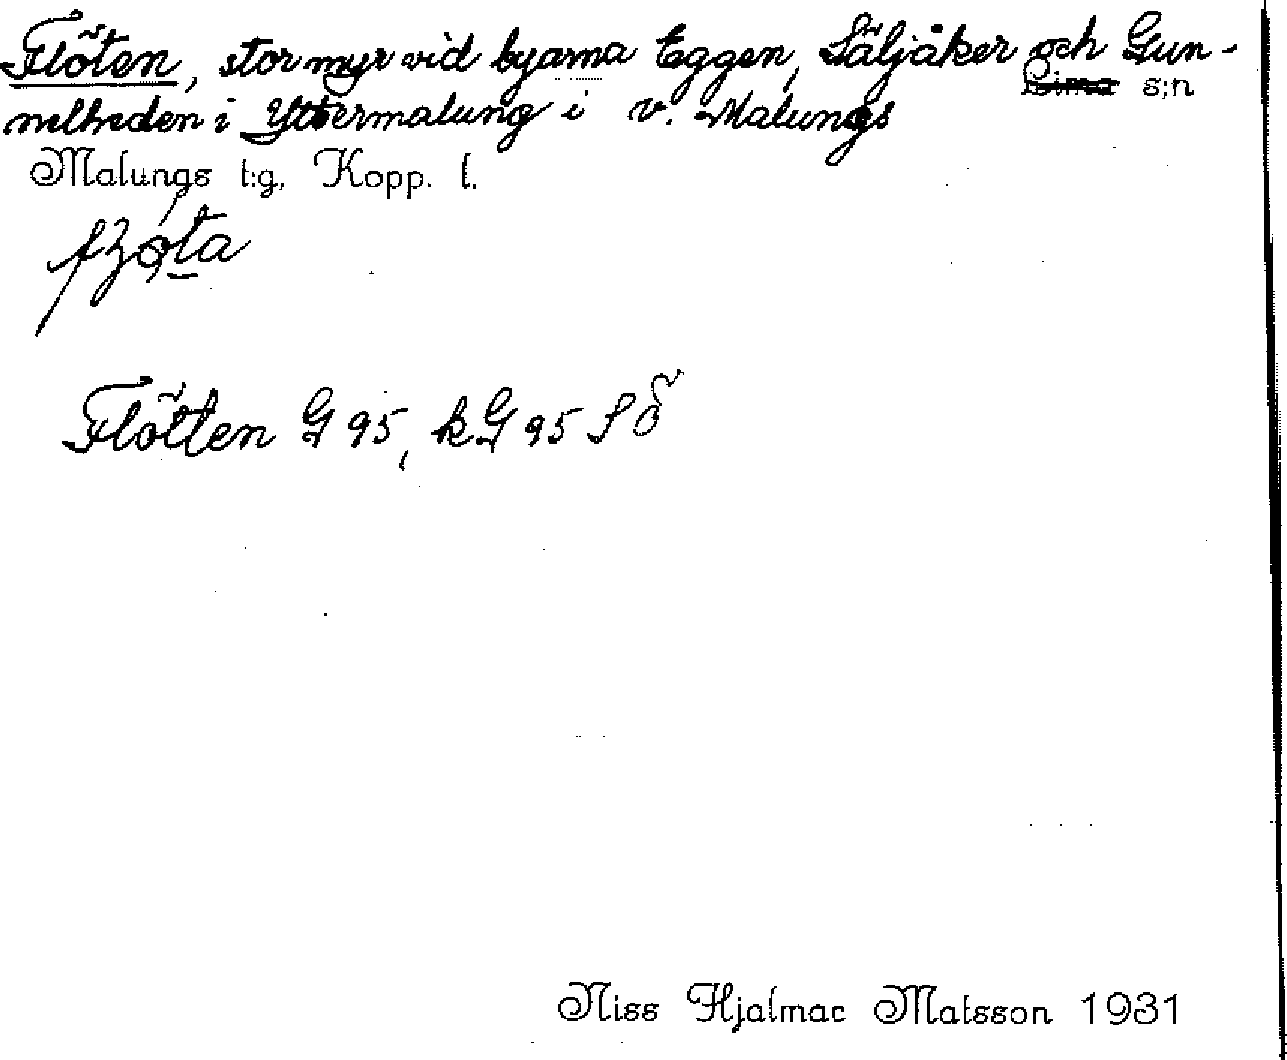 Flöten, stor myr vid byarna Eggen, Säljåker och Gun-
nelheden i Yttermalung i v. Malungs s:n
Malungs t:g, Kopp. l.
Flötten G 95, kG 95 SÖ
Niss Hjalmar Matsson 1931